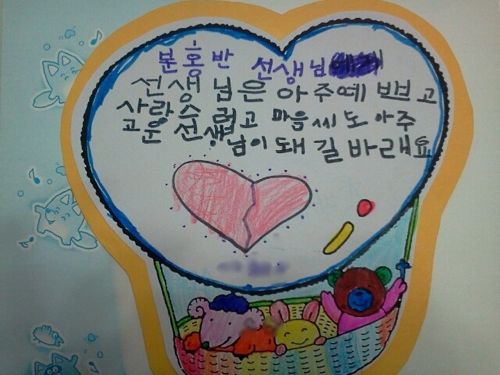 분홍반 선생님
선생님은 아주예쁘고
사랑스럽고 마음씨도 아주
고운 선생님이 돼길바래요